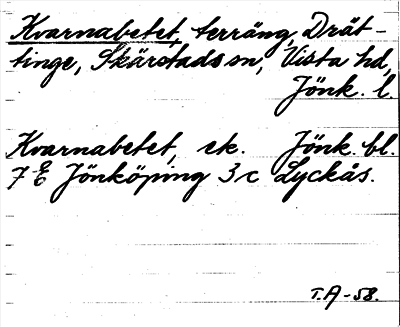 Kvarnabetet, terräng, Drät-
tinge, Skärstads sn, Vista hd,
Jönk. l.
Kvarnabetet, ek. Jönk. bl.
7 E Jönköping 3 c Lyckås.
T.A-58.